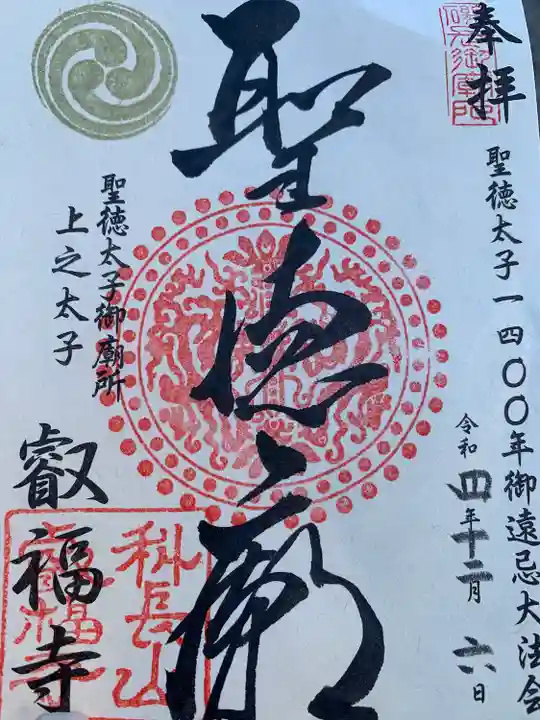 奉拝
聖徳太子一四〇〇年御遠忌大法会
令和四年十二月六日
聖徳廟
聖徳太子御廟所
上之太子
叡福寺
科長山